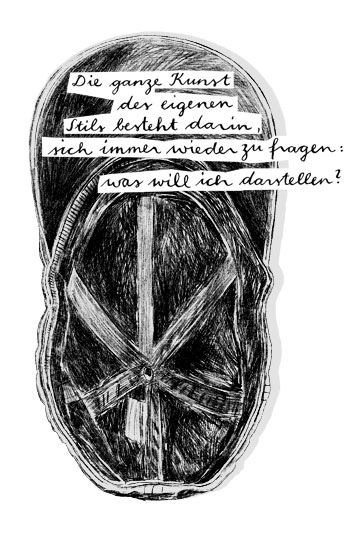 Die ganze Kunst
des eigenen
Stils besteht darin,
sich immer wieder zu fragen:
was will ich darstellen?